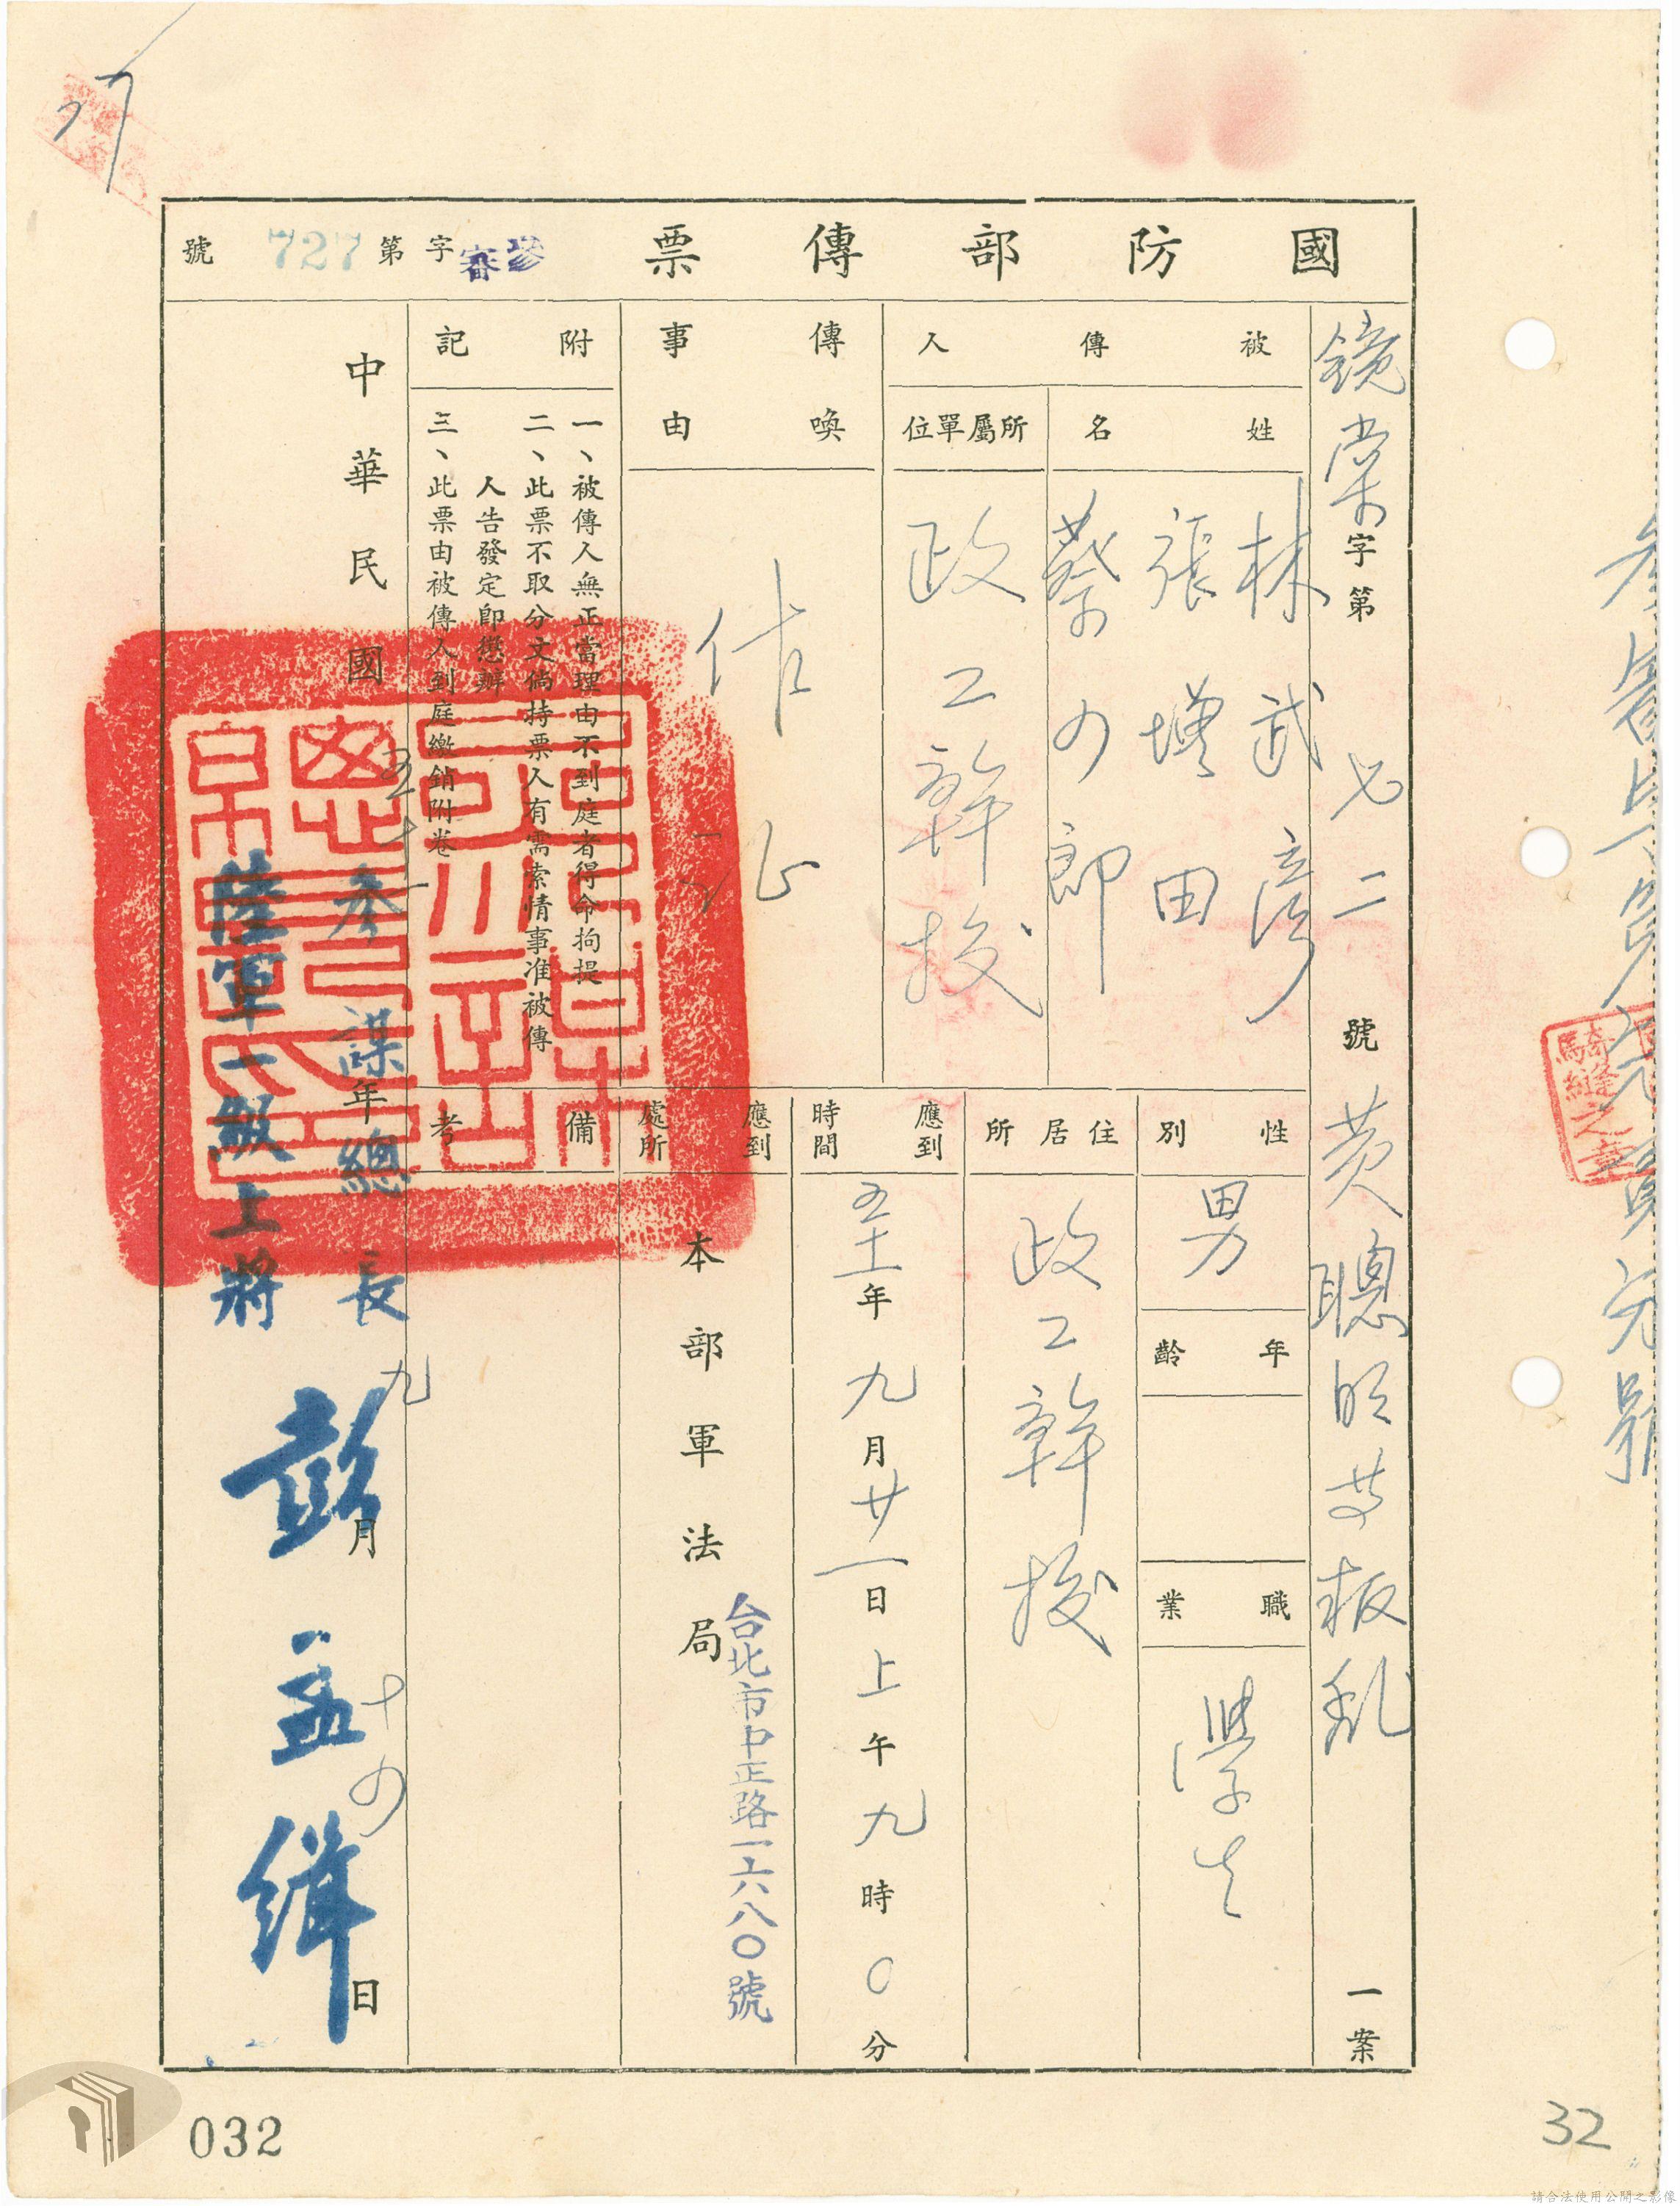 國防部傳票
審字第727號
鏡棠字第七二號黃聰明等叛亂一案
被傳人
姓名
林武彥
張增田
蔡四郎
所屬單位
政工幹校
性別
男
年齡
職業
學生
住居所
政工幹校
傳喚事由
作証
應到時間
五十一年九月廿一日上午九時0分
應到處所
本部軍法局
台北市中正路一六八〇號
附記
一、被傳人無正當理由不到庭者得命拘提
二、此票不取分文倘持票人有需索情事准被傳
人告發定卽懲辦
三、此票由被傳人到庭繳銷附卷
備考
中華民國五十一年九月十四日
參謀總長
陸軍一級上將
彭孟緝
騎縫之章
032
32
請合法使用公開之影像